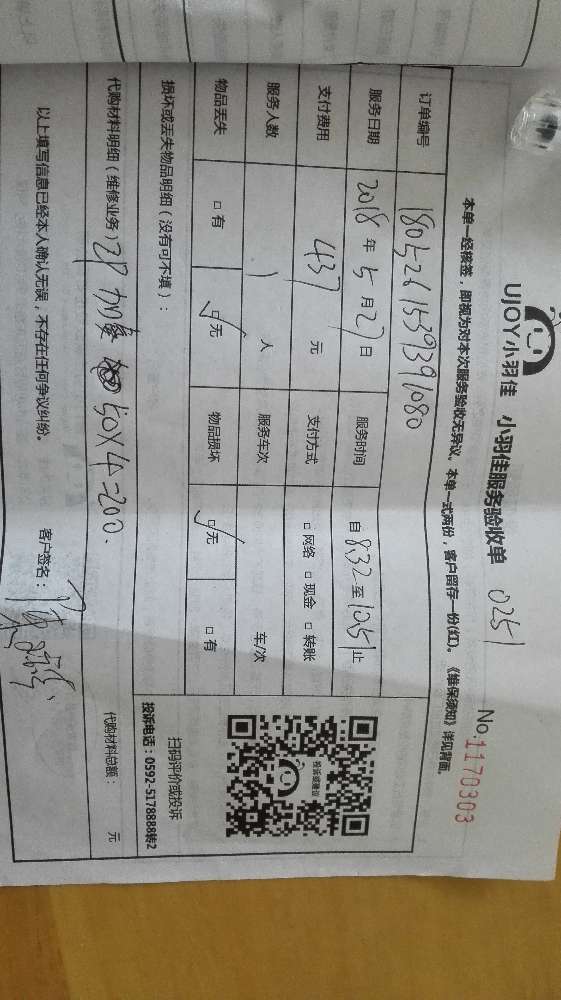 UJOY小羽佳 小羽佳服务验收单 0251
No.1170303
本单一经核签，即视为对本次服务验收无异议。本单一式两份，客户留存一份(红)。《维保须知》详见背面。
订单编号 180526153939080
服务日期 2018年5月27日 服务时间 自8:32至1051止
支付费用 437元 支付方式 □网络 □现金 □转账
服务人数 1人 服务车次 车/次
物品丢失 □有 □无 物品损坏 □无 □有
损坏或丢失物品明细（没有可不填）：
扫码评价或投诉
投诉电话：0592-5178888转2
投诉或建议
代购材料明细（维修业务）2P 加 50×4=200.
代购材料总额： 元
以上填写信息已经本人确认无误，不存在任何争议纠纷。 客户签名：